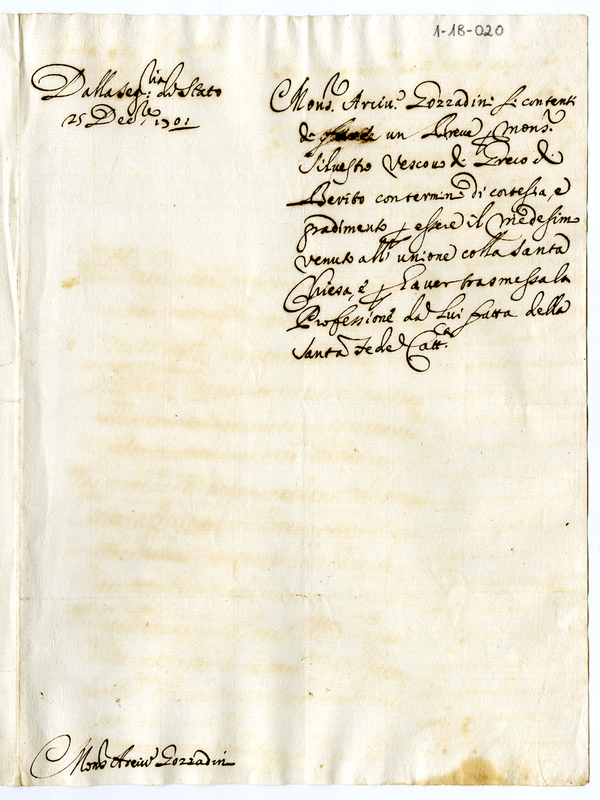 1-18-020
Dalla Seg.ria di Stato
25 Dec.re 1701
Mons.r Arciv.o Gozzadini si contenti
di un Breve p mons.r
Silvestro Vescovo di Greco di
Berito con termini di cortesia, e
gradimento p essere il medesimo
venuto all'unione colla Santa
Chiesa, e p haver trasmessa la
Professione da lui fatta della
Santa Fede Catt.ca
Mons.r Arciv.o Gozzadini